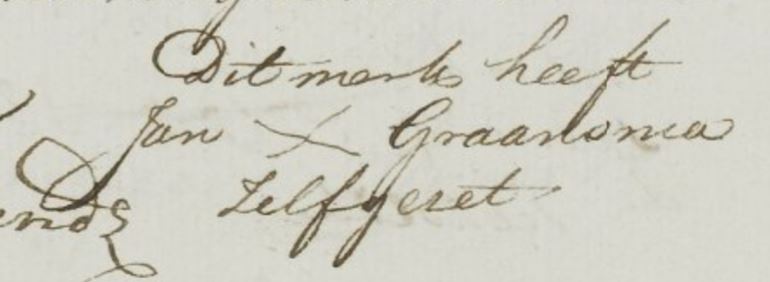 Dit merk heeft
Jan X Graansma
zelf gezet